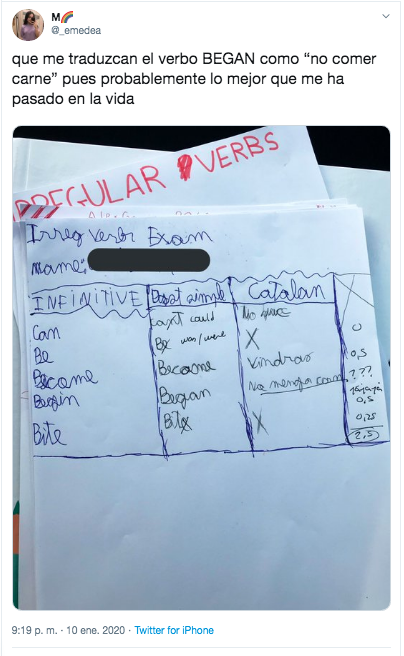 M🌈
@_emedea
que me traduzcan el verbo BEGAN como “no comer
carne” pues probablemente lo mejor que me ha
pasado en la vida
IRREGULAR VERBS
Irreg Verbs Exam
Name:
INFINITIVE Past simple Catalan
Can Can't could No puc
Be Be was/were X 0
Become Became Vindras 0,5
Begin Began No menja carn ???
jajajaja
0,5
Bite Bite X 0,25
2,5
9:19 p. m. · 10 ene. 2020 · Twitter for iPhone